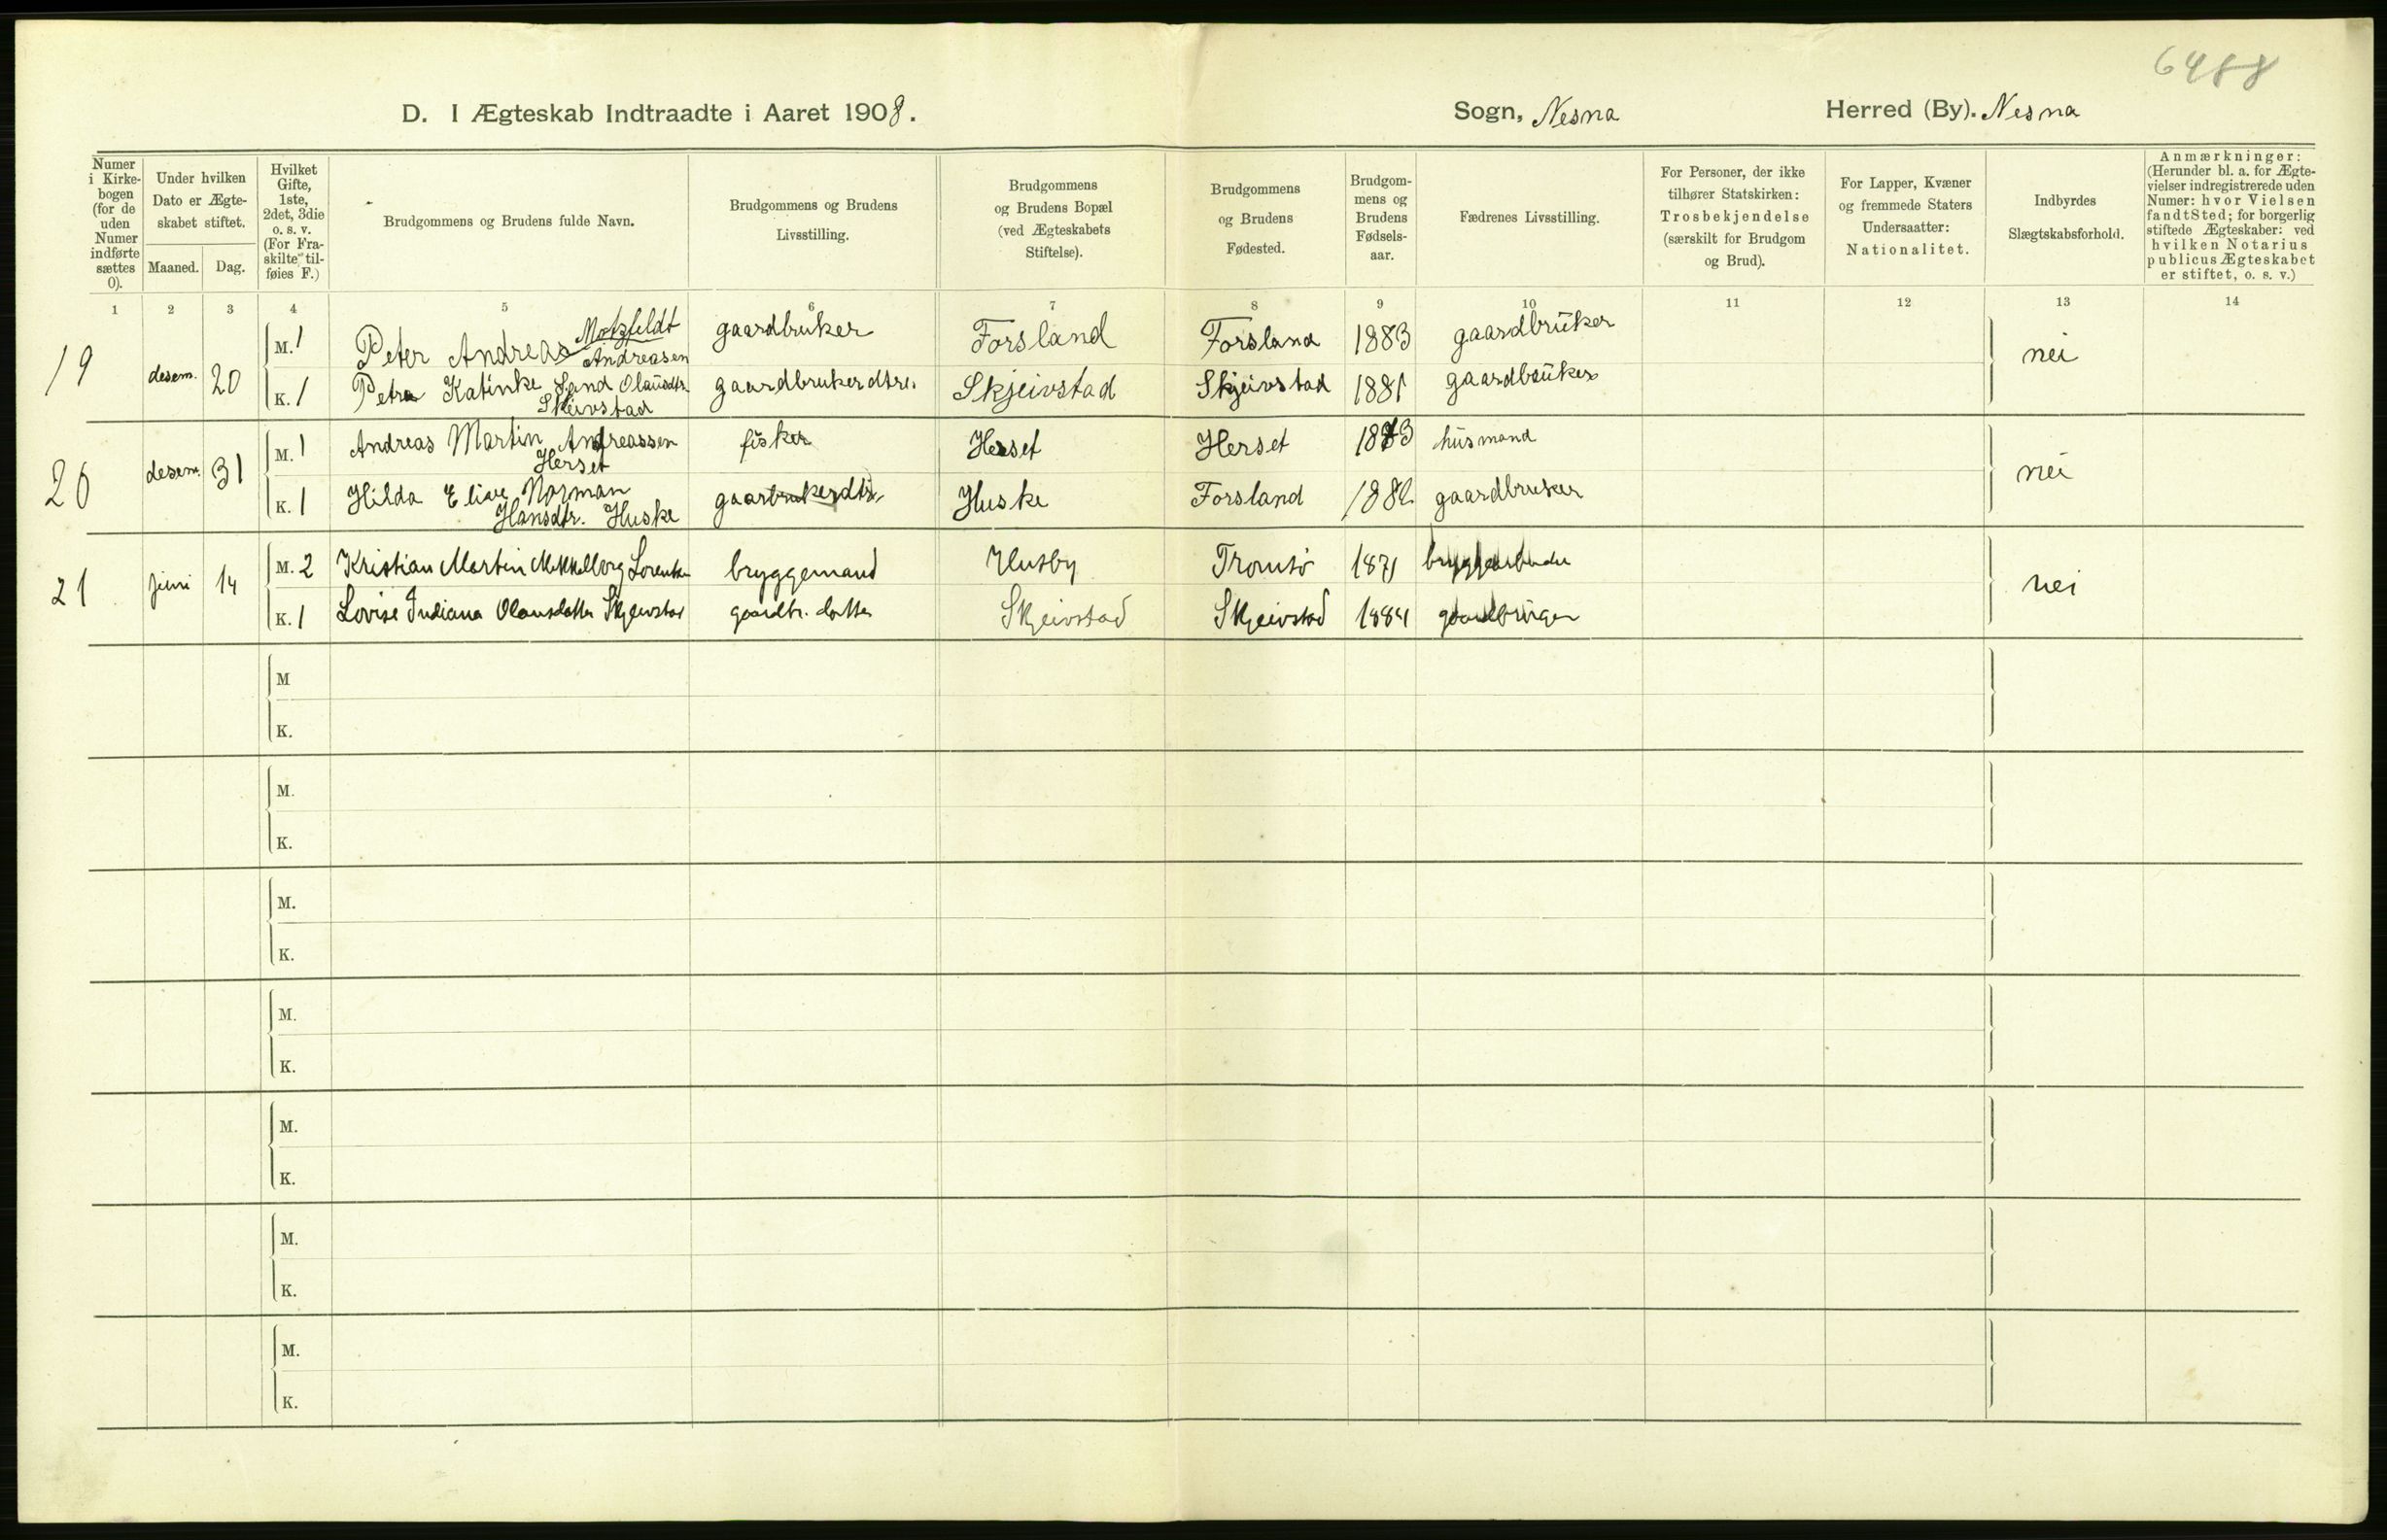 6488
D. I Ægteskab Indtraadte i Aaret 1908.
Sogn, Nesna
Herred (By). Nesna
Numer i Kirke-bogen (for de uden Numer indførte sættes 0).
Under hvilken Dato er Ægte-skabet stiftet.
Maaned. Dag.
Hvilket Gifte, 1ste, 2det, 3die o. s. v. (For Fra-skilte til-føies F.)
Brudgommens og Brudens fulde Navn.
Brudgommens og Brudens Livsstilling.
Brudgommens og Brudens Bopæl (ved Ægteskabets Stiftelse).
Brudgommens og Brudens Fødested.
Brudgom-mens og Brudens Fødsels-aar.
Fædrenes Livsstilling.
For Personer, der ikke tilhører Statskirken: Trosbekjendelse (særskilt for Brudgom og Brud).
For Lapper, Kvæner og fremmede Staters Undersaatter: Nationalitet.
Indbyrdes Slægtskabsforhold.
Anmærkninger: (Herunder bl. a. for Ægte-vielser indregistrerede uden Numer: hvor Vielsen fandt Sted; for borgerlig stiftede Ægteskaber: ved hvilken Notarius publicus Ægteskabet er stiftet, o. s. v.)
1 2 3 4 5 6 7 8 9 10 11 12 13 14
19 desem. 20
M. 1 Peter Andreas Motzfeldt Andreasen gaardbruker Forsland Forsland 1883 gaardbruker nei
K. 1 Petra Katinke Sand Olausdtr. Skeivstad gaardbrukerdtr. Skjeivstad Skjeivstad 1881 gaardbruker
20 desem. 31
M. 1 Andreas Martin Andreassen Herset fisker Herset Herset husmand nei
K. 1 Hilda Norman Hansdtr. Huske gaarbrukerdtr. Huske Forsland gaardbruker
21 juni 14
M. 2 Kristian Martin bryggemand Husby Tromsø 1871 nei
K. 1 Lovise Indiana Olausdatter Skjeivstad gaardbr. datter Skjeivstad Skjeivstad 1884
M
K.
M.
K.
M.
K.
M.
K.
M.
K.
M.
K.
M.
K.